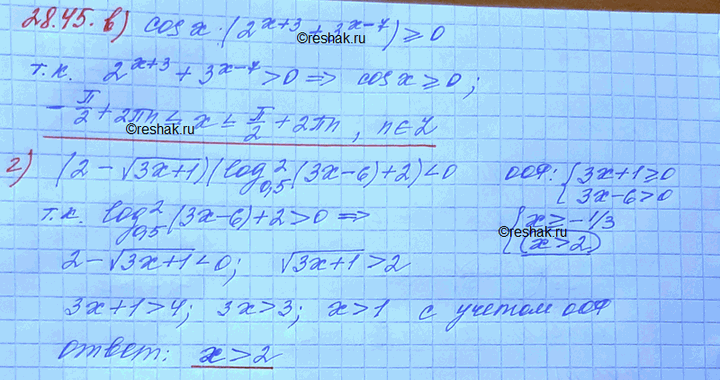 28.45. в) cos x · (2^{x+3} + 3^{x-7}) ≥ 0
©reshak.ru
т.к. 2^{x+3} + 3^{x-7} > 0 => cos x ≥ 0;
-π/2 + 2πn ≤ x ≤ π/2 + 2πn, n ∈ Z
©reshak.ru
г) (2 - √(3x+1)) (log²_{0,5} (3x-6) + 2) < 0 ООФ: { 3x+1 ≥ 0
©reshak.ru 3x-6 > 0
т.к. log²_{0,5} (3x-6) + 2 > 0 => { x ≥ -1/3
©reshak.ru x > 2
2 - √(3x+1) < 0; √(3x+1) > 2
3x+1 > 4; 3x > 3; x > 1 с учетом ООФ
©reshak.ru
ответ: x > 2